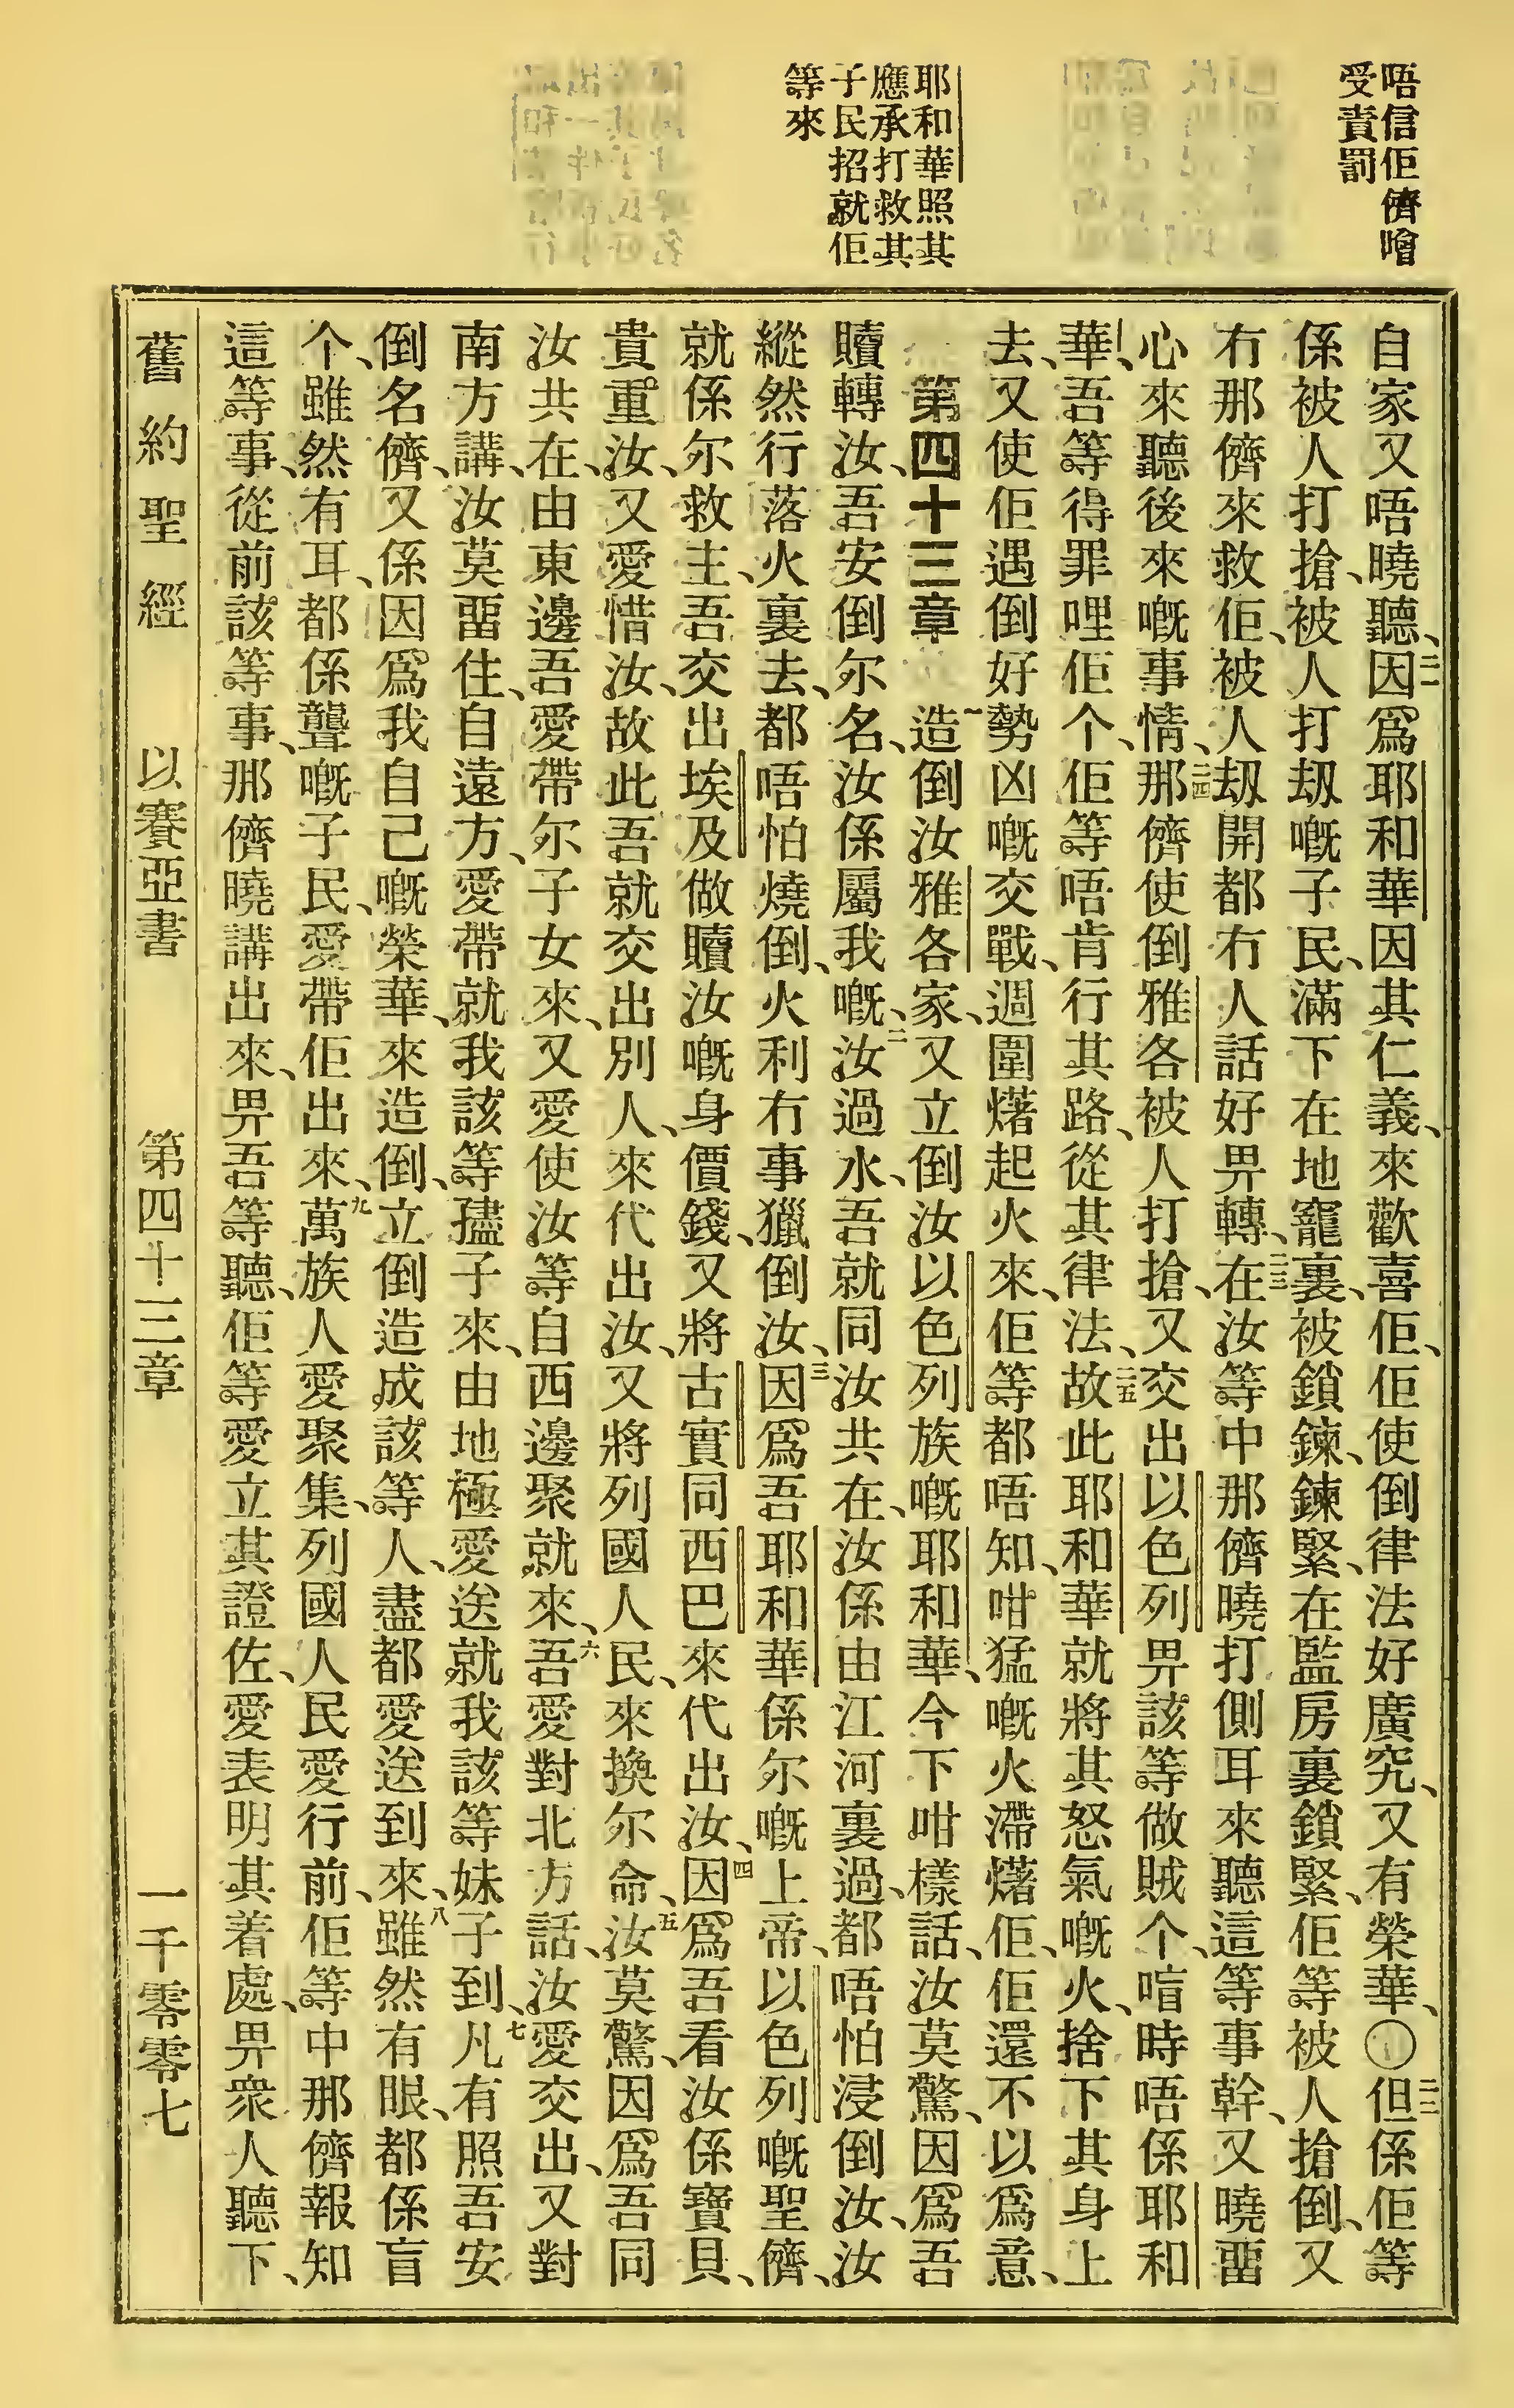 唔信佢儕噲
受責罰
耶和華照其
應承打救其
子民招就佢
等來
自家又唔曉聽、二一因爲耶和華因其仁義、來歡喜佢、佢使倒律法好廣究、又有榮華、〇二二但係佢等
係被人打搶、被人打刼嘅子民、滿下在地窿裏、被鎖鍊、鍊緊、在監房裏鎖緊、佢等被人搶倒、又
冇那儕來救佢、被人刼開都冇人話好畀轉、二三在汝等中那儕曉打側耳來聽這等事幹、又曉畱
心來聽後來嘅事情、二四那儕使倒雅各被人打搶、又交出以色列畀該等做賊个、喧時唔係耶和
華、吾等得罪哩佢个、佢等唔肯行其路、從其律法、二五故此耶和華就將其怒氣嘅火、捨下其身上
去、又使佢遇倒好勢凶嘅交戰、週圍㸑起火來、佢等都唔知、咁猛嘅火滯㸑佢、佢還不以爲意、
第四十三章 一造倒汝雅各家、又立倒汝以色列族嘅耶和華、今下咁樣話、汝莫驚、因爲吾
贖轉汝、吾安倒尔名、汝係屬我嘅、二汝過水、吾就同汝共在、汝係由江河裏過、都唔怕浸倒汝、汝
縱然行落火裏去、都唔怕燒倒、火利冇事獵倒汝、三因爲吾耶和華係尔嘅上帝、以色列嘅聖儕、
就係尔救主、吾交出埃及做贖汝嘅身價錢、又將古實同西巴來代出汝、四因爲吾看汝係寶貝、
貴重汝、又愛惜汝、故此吾就交出別人、來代出汝、又將列國人民、來換尔命、五汝莫驚、因爲吾同
汝共在、由東邊吾愛帶尔子女來、又愛使汝等自西邊聚就來、六吾愛對北方話、汝愛交出、又對
南方講、汝莫畱住、自遠方、愛帶就我該等孻子來、由地極愛送就我該等妹子到、七凡有照吾安
倒名儕、又係因爲我自己嘅榮華、來造倒、立倒造成該等人、盡都愛送到來、八雖然有眼、都係盲
个、雖然有耳、都係聾嘅子民、愛帶佢出來、九萬族人愛聚集、列國人民愛行前、佢等中那儕報知
這等事、從前該等事、那儕曉講出來、畀吾等聽、佢等愛立其證佐、愛表明其着處、畀衆人聽下、
舊約聖經 以賽亞書 第四十三章 一千零零七